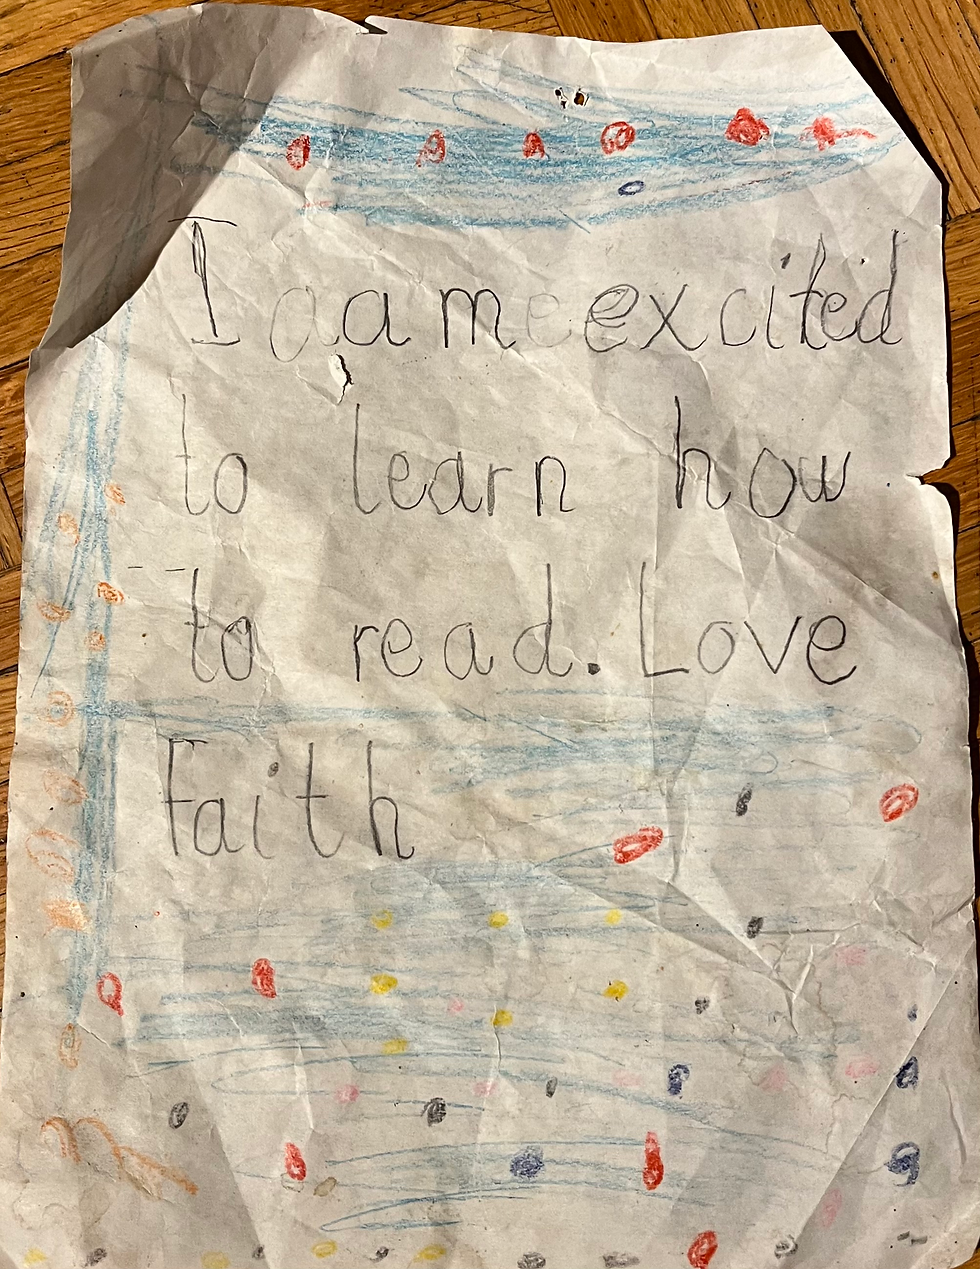 I am excited
to learn how
to read. Love
Faith